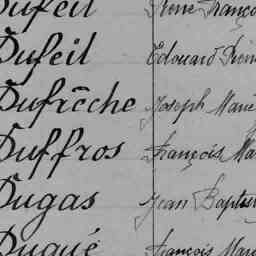 Dufeil René Franço
Dufeil Edouard Pierre
Dufrêche Joseph Marie
Duffros François Ma
Dugas Jean Baptis
Dugué François Mari